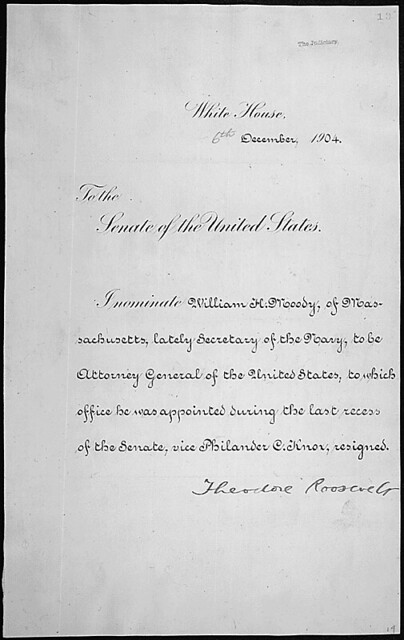 The Judiciary.
White House,
6th December, 1904.
To the
Senate of the United States.
I nominate William H. Moody, of Mas-
sachusetts, lately Secretary of the Navy, to be
Attorney General of the United States, to which
office he was appointed during the last recess
of the Senate, vice Philander C. Knox, resigned.
Theodore Roosevelt